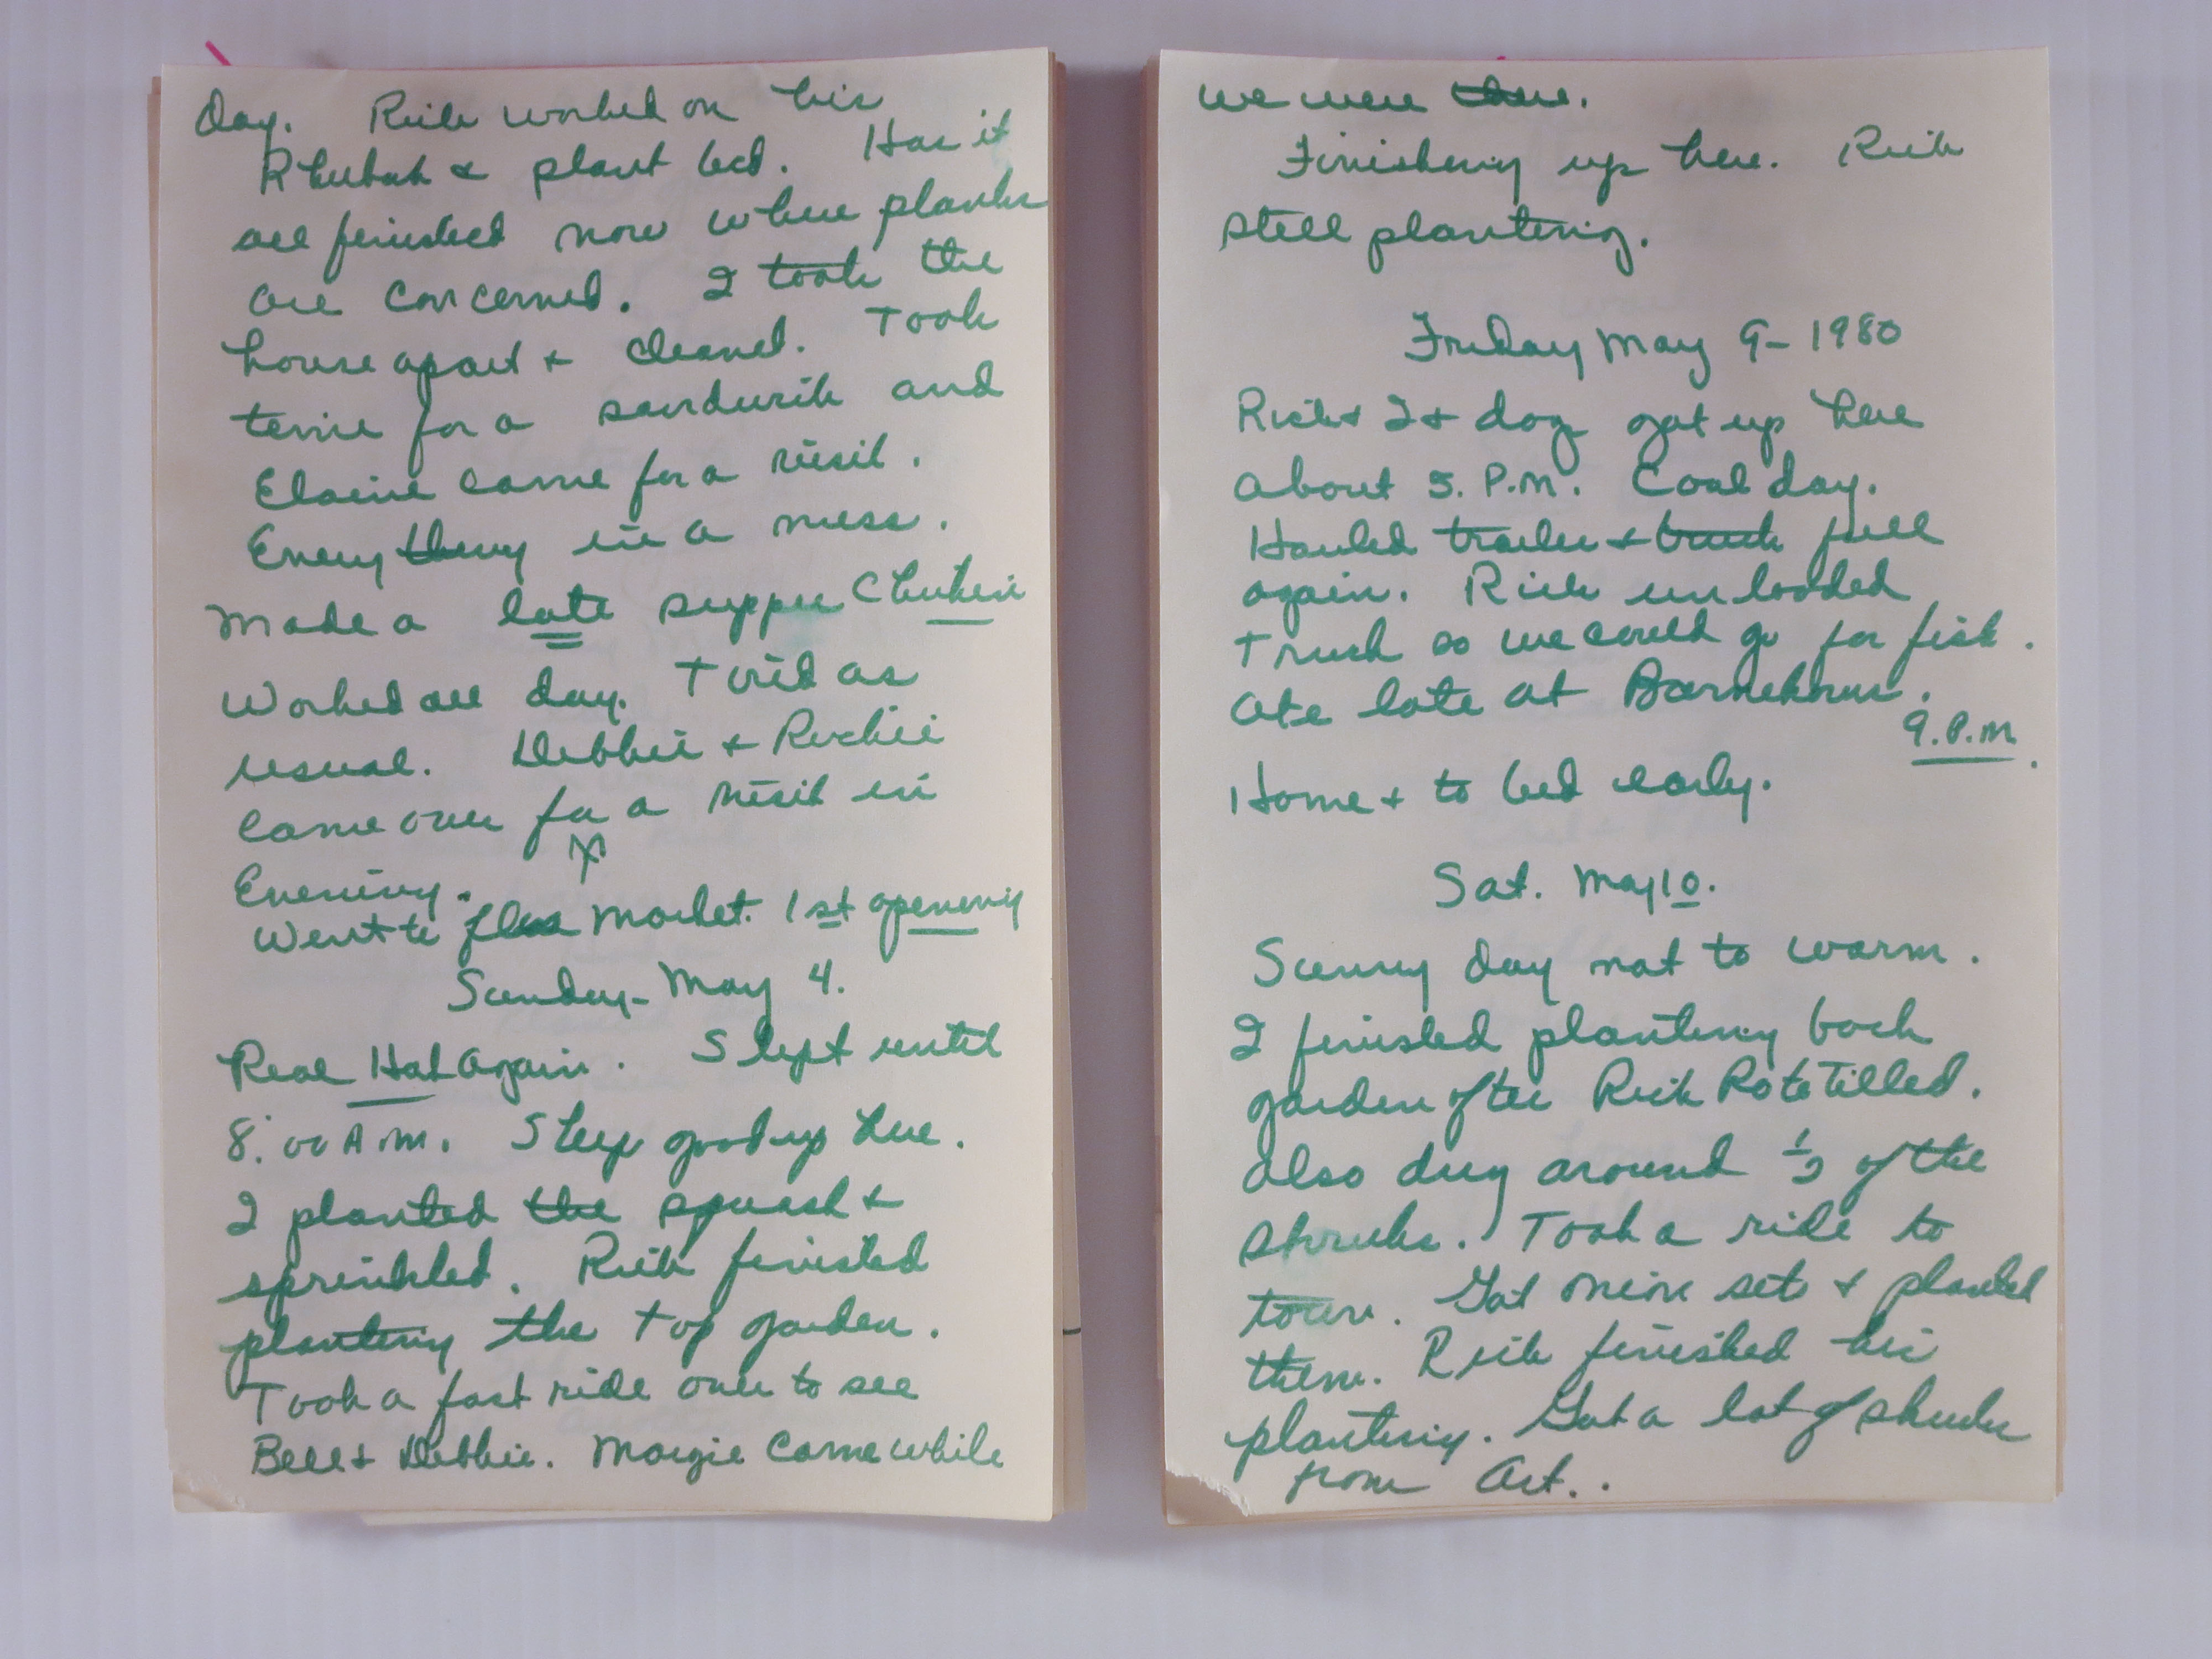 Day. Rick worked on his
Rhubab & plant bed. Has it
all finished now where planks
are concerned. I took the
house apart & cleaned. Took
time for a sandwich and
Elaine came for a visit.
Everything in a mess.
Made a late supper Chicken
Worked all day. Tired as
usual. Debbie & Richie
came over for a visit in
Evening.
Went to flea Market. 1st opening
Sunday - May 4.
Real Hot again. Slept until
8:00 A.M. Sleep good up here.
I planted the squash &
sprinkled. Rick finished
planting the top garden.
Took a fast ride over to see
Bill & Debbie. Margie came while
we were there.
Finishing up here. Rick
still planting.
Friday May 9 - 1980
Rick & I & dog got up here
about 5. P.M. Cool day.
Hauled trailer & truck full
again. Rick unloaded
truck so we could go for fish.
Ate late at
9. P.M.
Home & to bed early.
Sat. May 10.
Sunny day not to warm.
I finished planting back
garden after Rick Rototilled.
Also dug around 1/2 of the
shrubs. Took a ride to
town. Got onion sets & planted
them. Rick finished his
planting. Got a lot of shrubs
from Art..